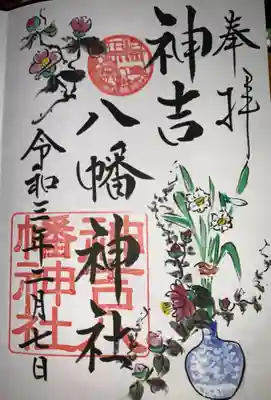 奉拝
神吉
八幡神社
令和三年二月七日
神吉八
幡神社